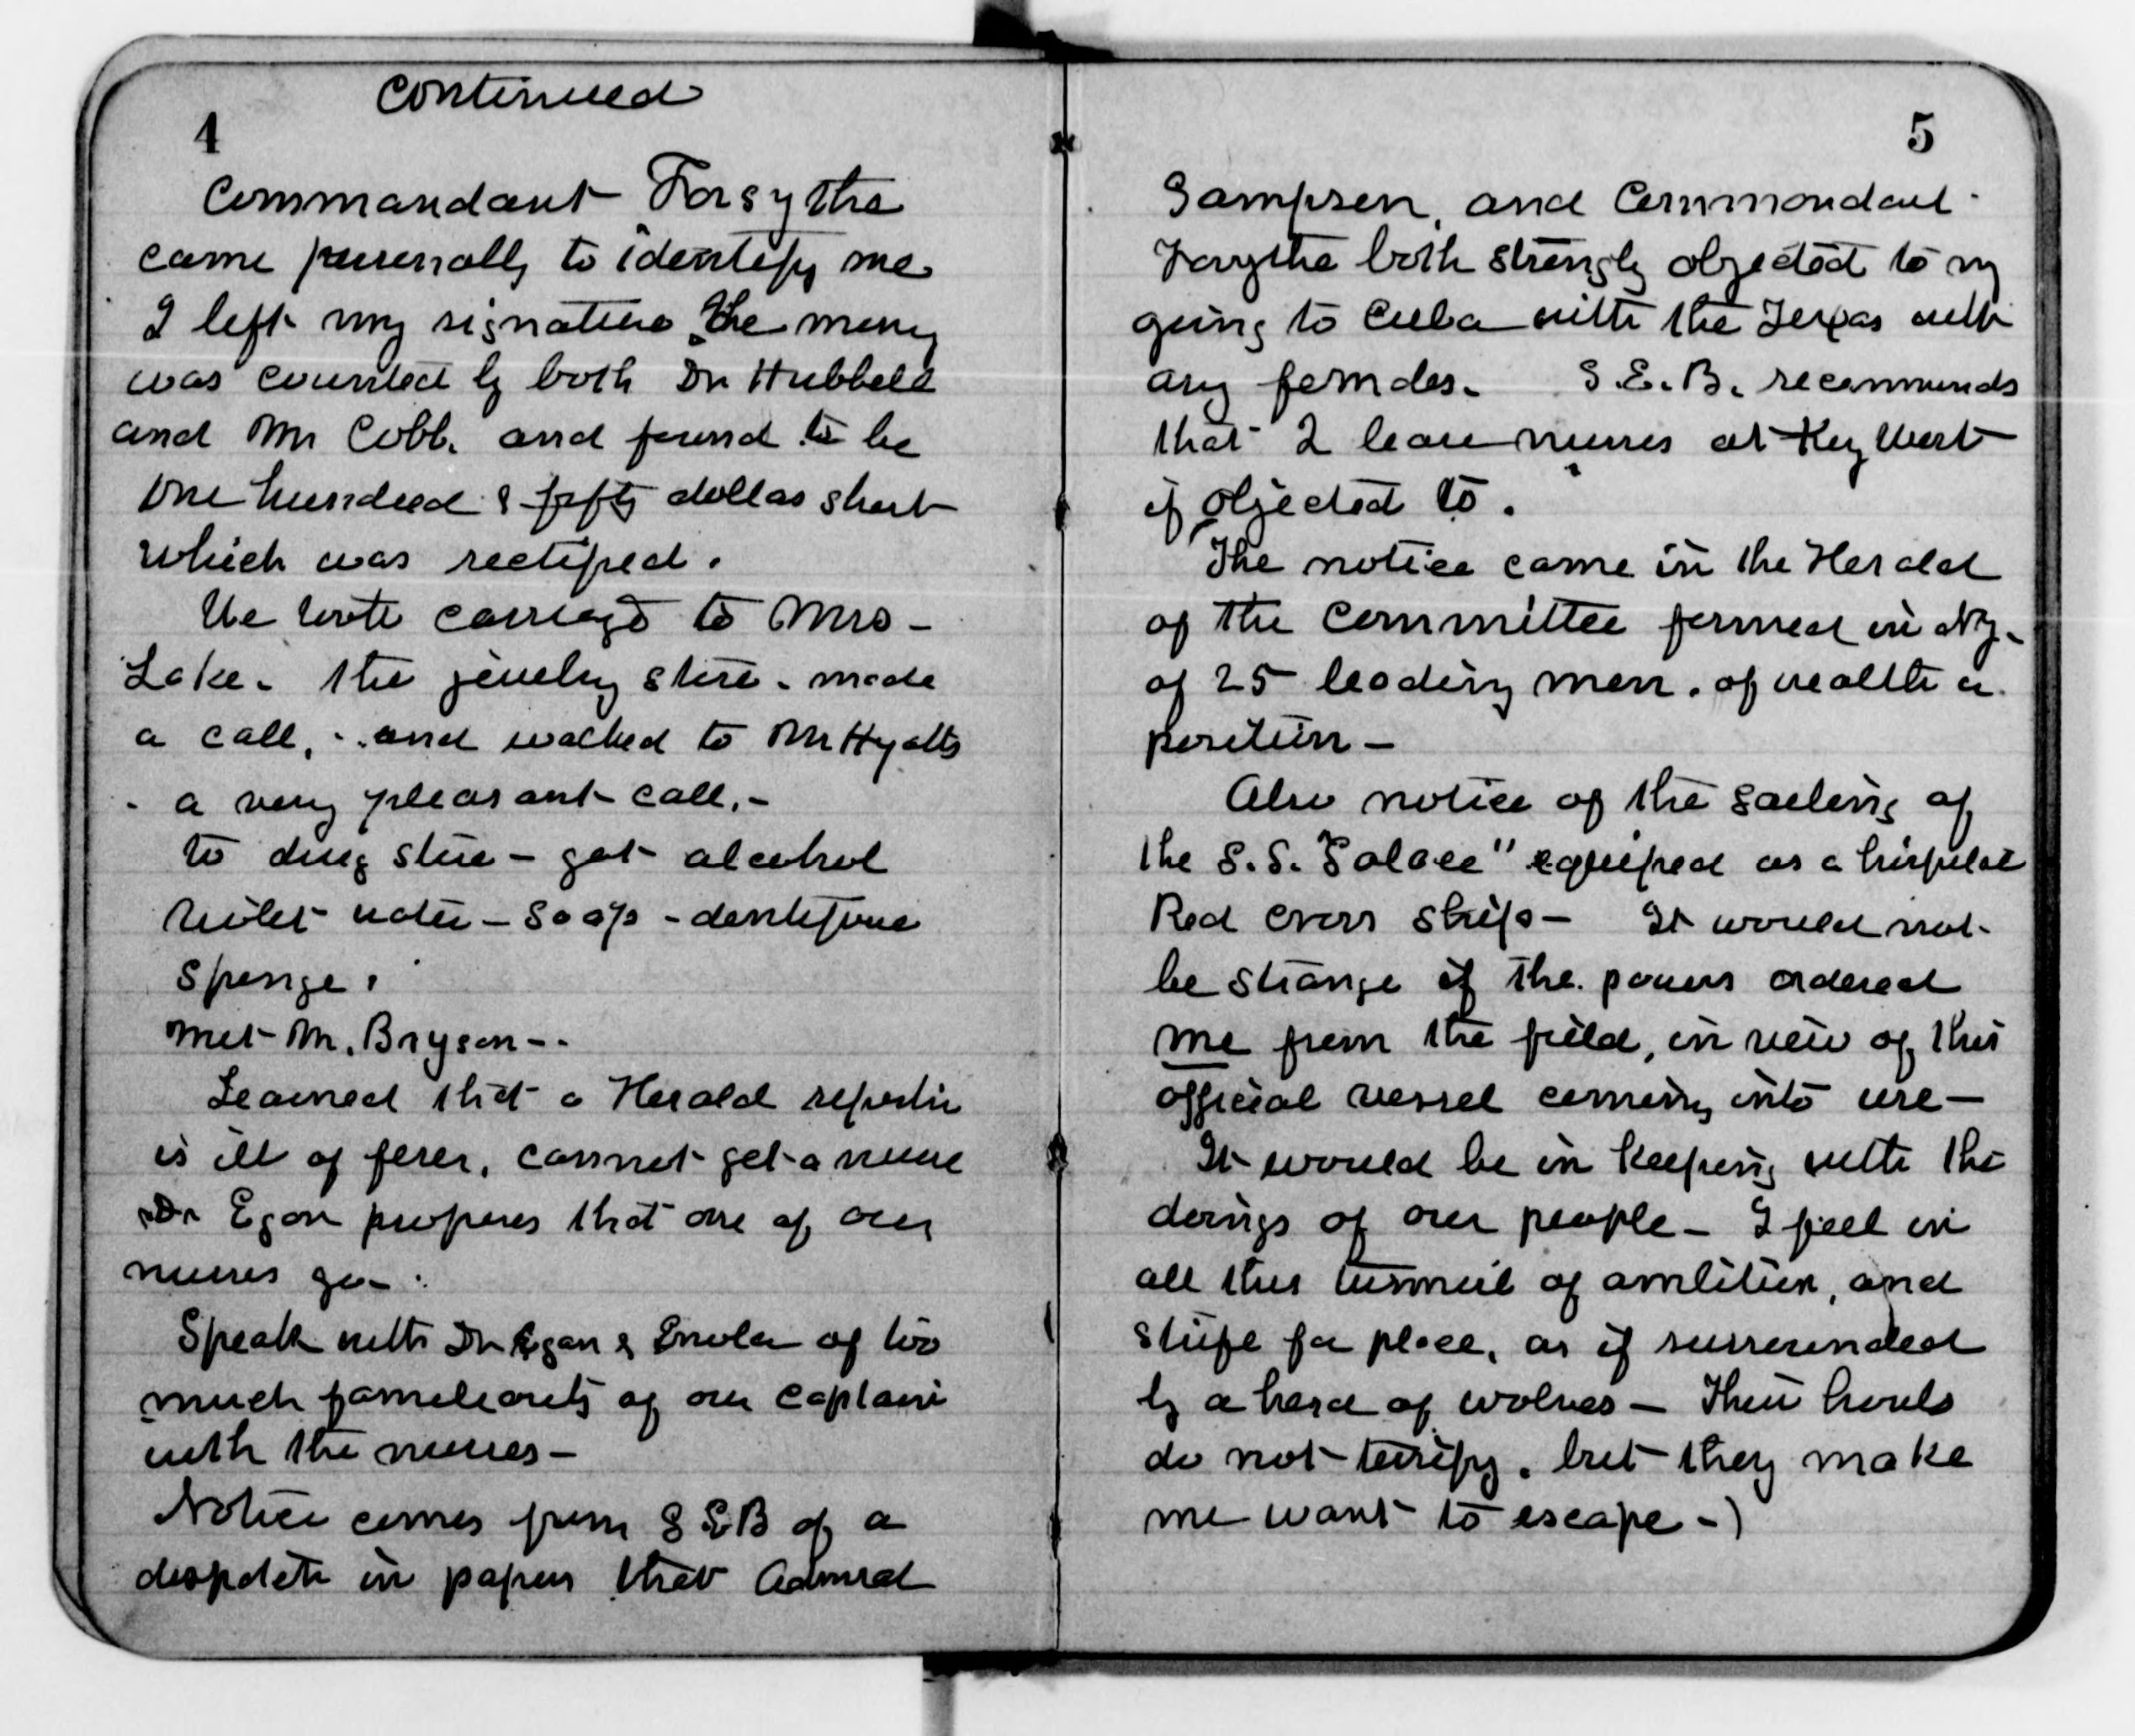 continued
4
Commandant Forsythe
came personally to identify me
I left my signature. The money
was counted by both Dr Hubbell
and Mr Cobb. and found to be
One hundred & fifty dollas short
which was rectified.
We took carriage to Mrs -
Lake. the jewelry store. made
a call, - and walked to Mr Hyatts
- a very pleasant call. -
to drug store - got alcohol
violet water - Soap - dentifrice
Sponge.
Met M. Bryson - -
Learned that a Herald reporter
is ill of fever, cannot get a nurse
Dr Egan proposes that one of our
nurses go -
Speak with Dr Egan & Enola of too
much familiarity of our Captain
with the nurses -
Notice comes from S E B of a
despatch in papers that Admiral
5
Sampson, and Commandant
Forsythe both strongly objected to my
going to Cuba with the Texas with
any females. S. E. B. recommends
that I leave nurses at Key West
if objected to.
The notice came in the Herald
of the Committee formed in N.Y.
of 25 leading men. of wealth &
position -
Also notice of the sailing of
the S. S. Solace" equiped as a hospital
Red Cross ship - It would not
be strange if the powers ordered
me from the field, in view of this
official vessel coming into use -
It would be in keeping with the
doings of our people - I feel in
all this turmoil of ambition, and
strife for place, as if surrounded
by a herd of wolves - Their howls
do not terrify. but they make
me want to escape - )